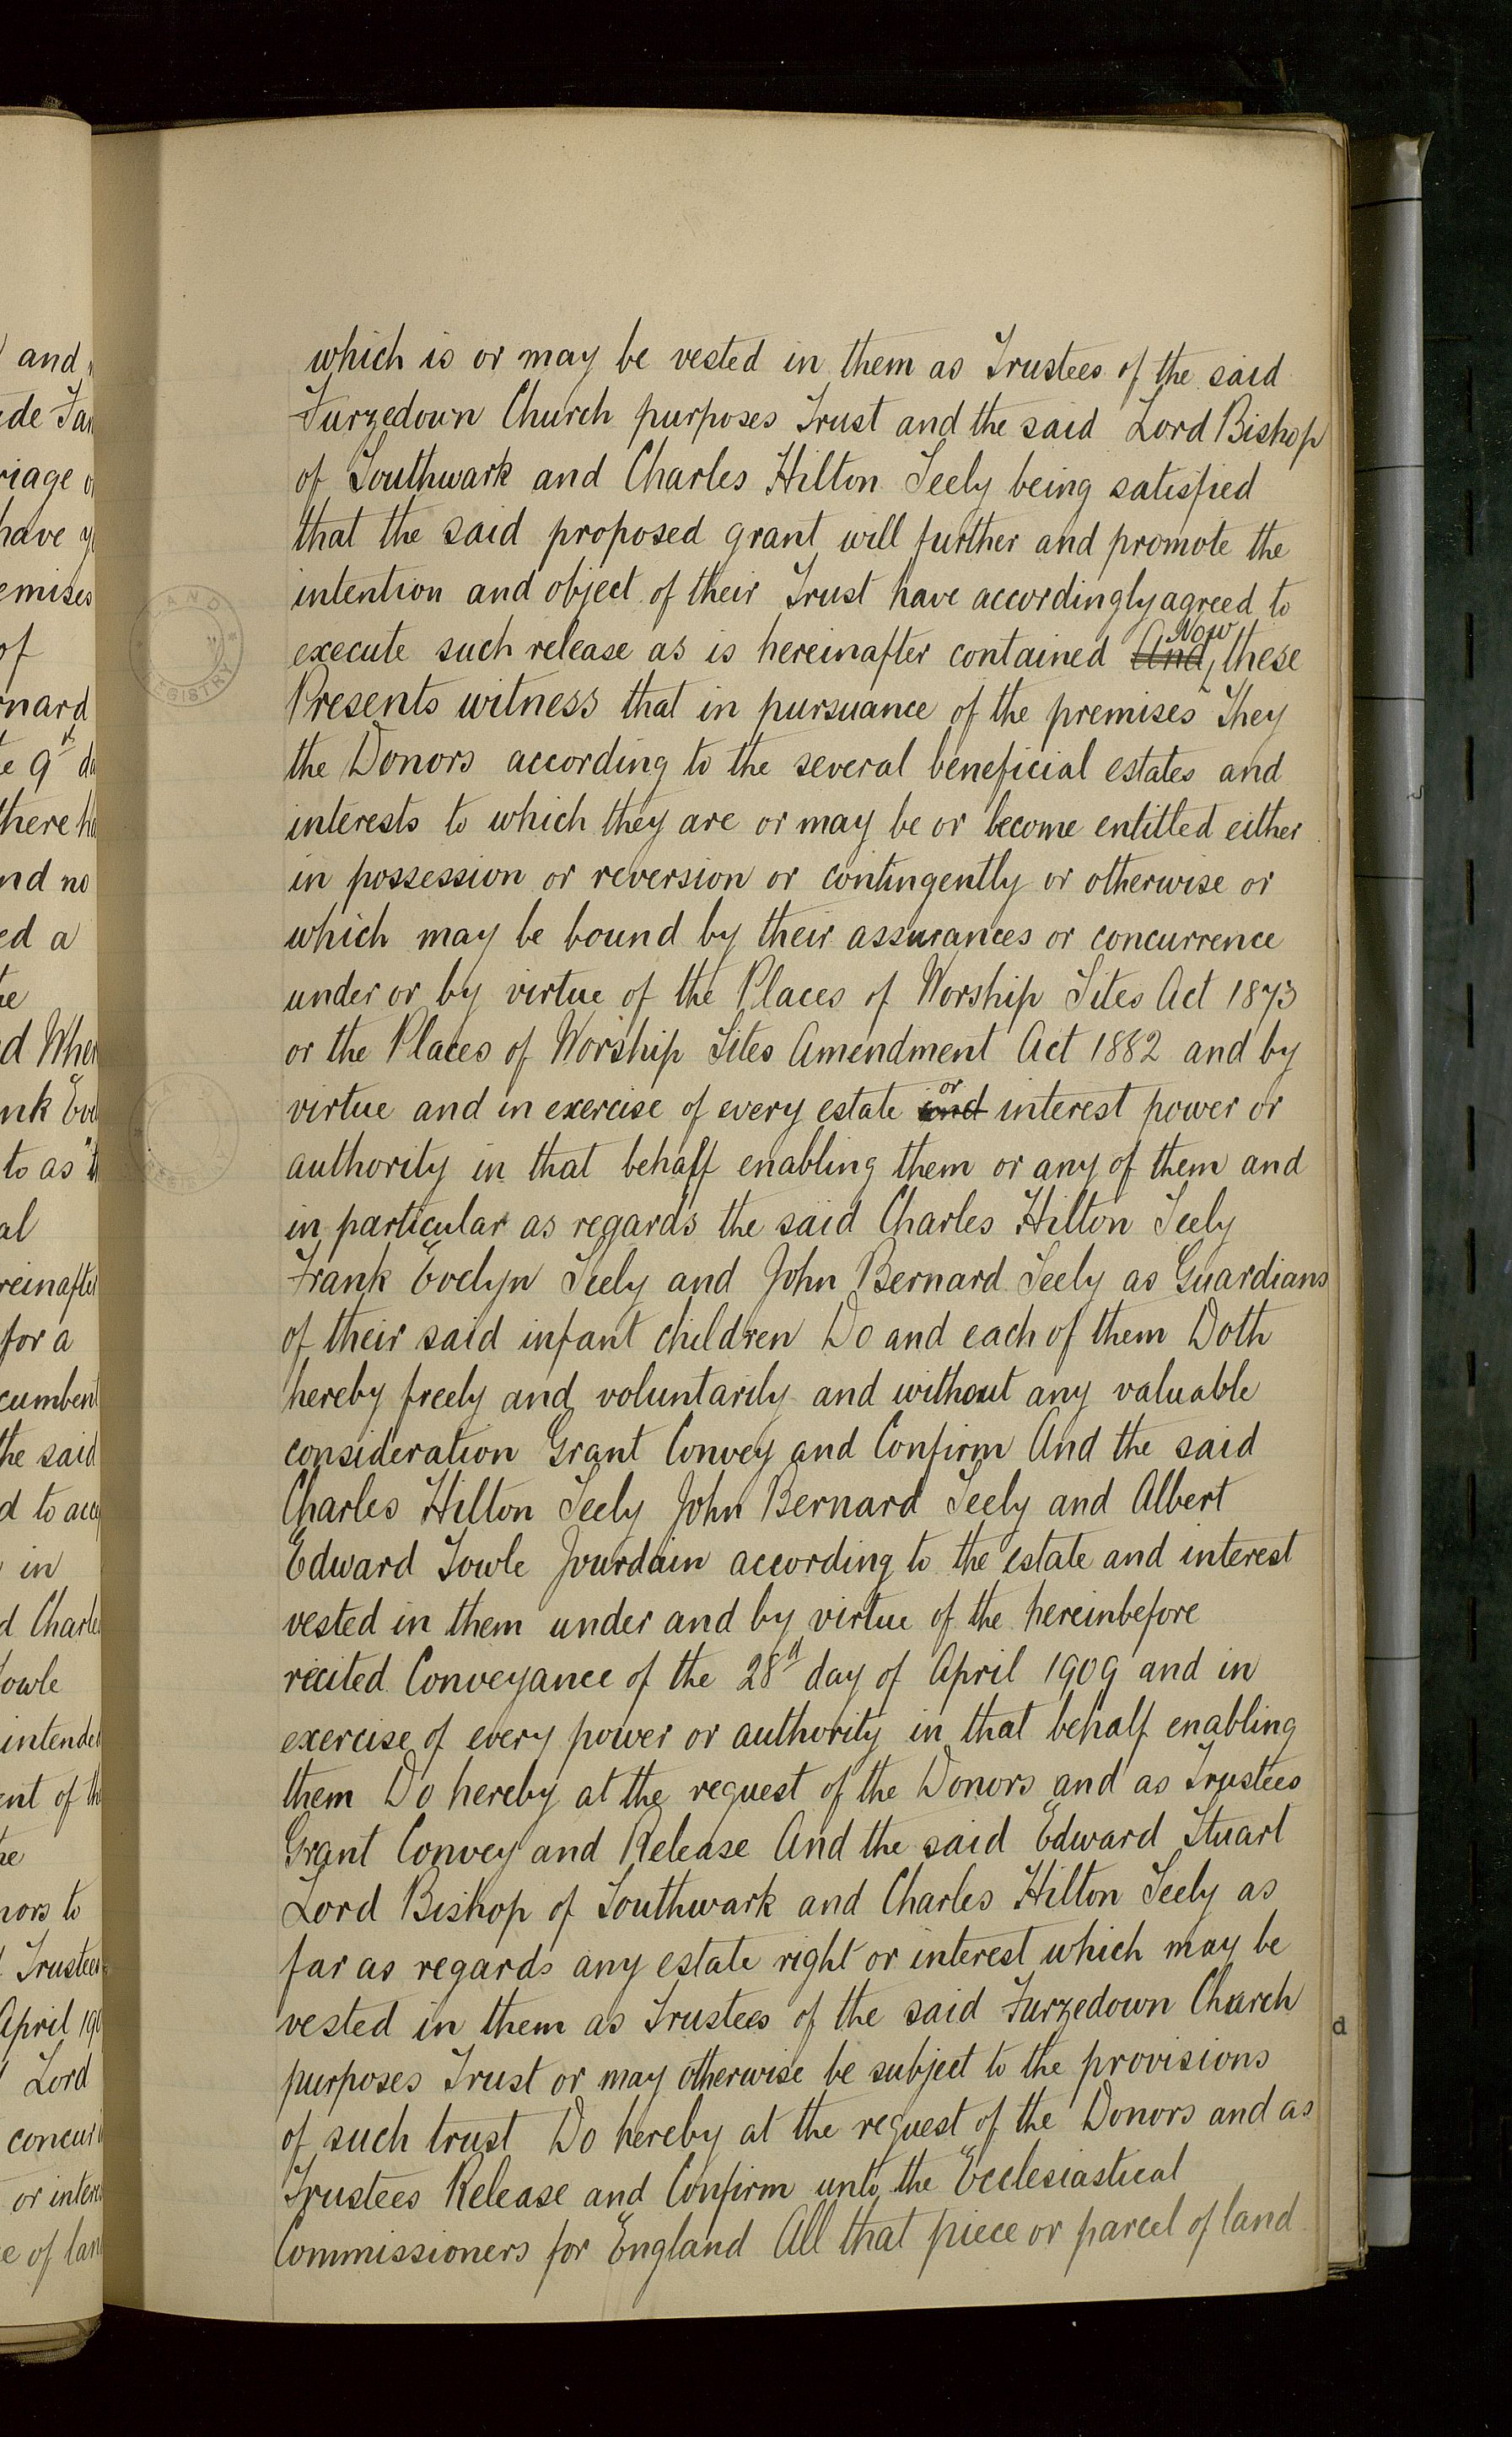 which is or may be vested in them as Trustees of the said
Furzedown Church purposes Trust and the said Lord Bishop
of Southwark and Charles Hilton Seely being satisfied
that the said proposed grant will further and promote the
intention and object of their Trust have accordingly agreed to
execute such release as is hereinafter contained And Now these
Presents witness that in pursuance of the premises They
the Donors according to the several beneficial estates and
interests to which they are or may be or become entitled either
in possession or reversion or contingently or otherwise or
which may be bound by their assurances or concurrence
under or by virtue of the Places of Worship Sites Act 1873
or the Places of Worship Sites Amendment Act 1882 and by
virtue and in exercise of every estate and or interest power or
authority in that behalf enabling them or any of them and
in particular as regards the said Charles Hilton Seely
Frank Evelyn Seely and John Bernard Seely as Guardians
of their said infant children Do and each of them Doth
hereby freely and voluntarily and without any valuable
consideration Grant Convey and Confirm And the said
Charles Hilton Seely John Bernard Seely and Albert
Edward Towle Jourdain according to the estate and interest
vested in them under and by virtue of the hereinbefore
recited Conveyance of the 28th day of April 1909 and in
exercise of every power or authority in that behalf enabling
them Do hereby at the request of the Donors and as Trustees
Grant Convey and Release And the said Edward Stuart
Lord Bishop of Southwark and Charles Hilton Seely as
far as regards any estate right or interest which may be
vested in them as Trustees of the said Furzedown Church
purposes Trust or may otherwise be subject to the provisions
of such trust Do hereby at the request of the Donors and as
Trustees Release and Confirm unto the Ecclesiastical
Commissioners for England All that piece or parcel of land